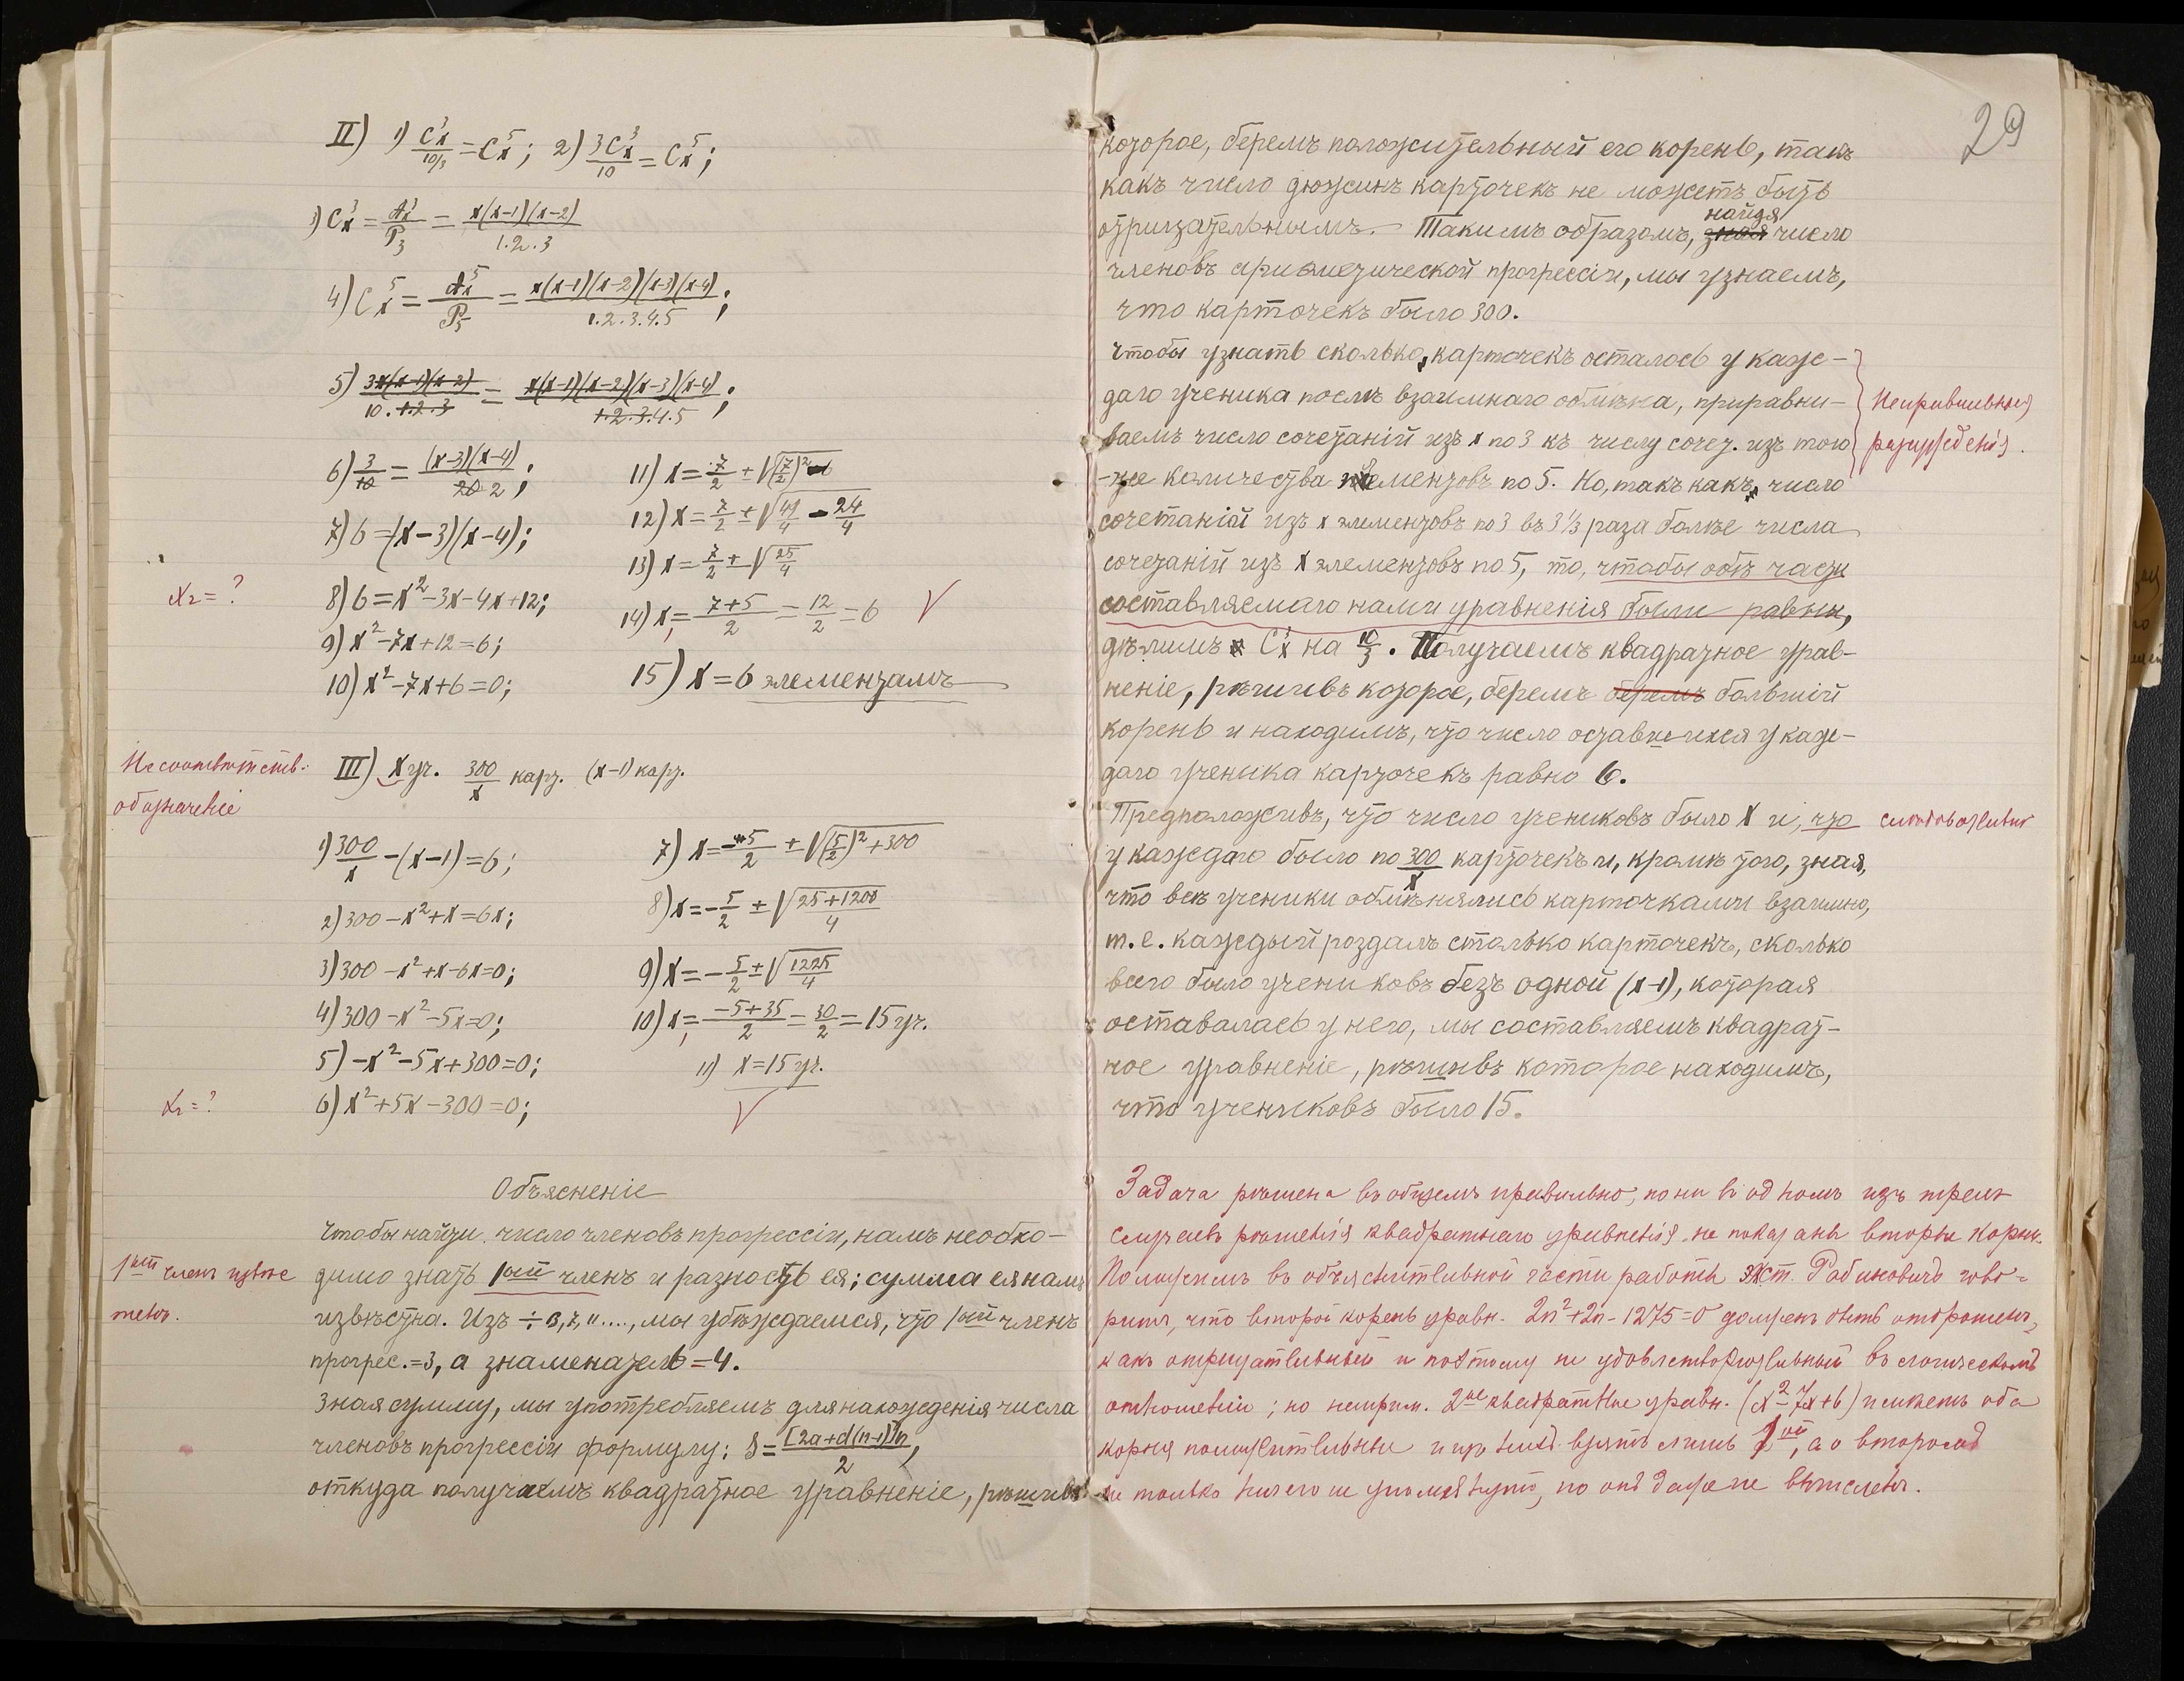 II) 1) C³ₓ/(10/3) = C⁵ₓ; 2) 3C³ₓ/10 = C⁵ₓ;
3) C³ₓ = A³ₓ/P₃ = x(x-1)(x-2)/1.2.3
4) C⁵ₓ = A⁵ₓ/P₅ = x(x-1)(x-2)(x-3)(x-4)/1.2.3.4.5;
5) 3x(x-1)(x-2)/10.1.2.3 = x(x-1)(x-2)(x-3)(x-4)/1.2.3.4.5;
6) 3/10 = (x-3)(x-4)/20 2;
7) 6=(x-3)(x-4);
x₂=?
8) 6=x²-3x-4x+12;
9) x²-7x+12=6;
10) x²-7x+6=0;
11) x=7/2±√(7/2)²-6
12) x=7/2±√49/4-24/4
13) x=7/2±√25/4
14) x₁=7+5/2=12/2=6 √
15) x=6 элементамъ
Несоотвѣтств.
обозначеніе
III) x уч. 300/x карт. (x-1) карт.
1) 300/x-(x-1)=6;
2) 300-x²+x=6x;
3) 300-x²+x-6x=0;
4) 300-x²-5x=0;
5) -x²-5x+300=0;
x₂=?
6) x²+5x-300=0;
7) x=-5/2±√(5/2)²+300
8) x=-5/2±√25+1200/4
9) x=-5/2±√1225/4
10) x₁=-5+35/2=30/2=15 уч.
11) x=15 уч.
√
Объясненіе
Чтобы найти число членовъ прогрессіи, намъ необхо-
1ый членъ извѣс
тенъ.
димо знать 1ый членъ и разность ея; сумма ея намъ
извѣстна. Изъ ÷ 3, 7, 11...., мы убѣждаемся, что 1ый членъ
прогрес.=3, а знаменатель=4.
Зная сумму, мы употребляемъ для нахожденія числа
членовъ прогрессіи формулу: S=[2a+d(n-1)]n/2,
откуда получаемъ квадратное уравненіе, рѣшивъ
29
которое, беремъ положительный его корень, такъ
какъ число дюжинъ карточекъ не можетъ быть
отрицательнымъ. Такимъ образомъ, зная найдя число
членовъ ариѳметической прогрессіи, мы узнаемъ,
что карточекъ было 300.
Чтобы узнать сколько карточекъ осталось у каж-
даго ученика послѣ взаимнаго обмѣна, приравни-
Неправильныя
ваемъ число сочетаній изъ x по 3 къ числу сочет. изъ того
разсужденія.
-же количества элементовъ по 5. Но, такъ какъ число
сочетаній изъ x элементовъ по 3 въ 3⅓ раза болѣе числа
сочетаній изъ x элементовъ по 5, то, чтобы обѣ части
составляемаго нами уравненія были равны,
дѣлимъ C³ₓ на 10/3. Получаемъ квадратное урав-
неніе, рѣшивъ которое, беремъ беремъ большій
корень и находимъ, что число оставшихся у каж-
даго ученика карточекъ равно 6.
Предположивъ, что число учениковъ было x и, что
у каждаго было по 300/x карточекъ и, кромѣ того, зная,
что всѣ ученики обмѣнялись карточками взаимно,
т.е. каждый роздалъ столько карточекъ, сколько
всего было учениковъ безъ одной (x-1), которая
оставалась у него, мы составляемъ квадрат-
ное уравненіе, рѣшивъ которое находимъ,
что учениковъ было 15.
Задача рѣшена въ общемъ правильно, но ни въ одномъ изъ трехъ
случаевъ рѣшенія квадратнаго уравненія не показаны вторые корни.
Положимъ въ объяснительной части работы экст. Рабиновичъ гово-
ритъ, что второй корень уравн. 2n²+2n-1275=0 долженъ быть отброшенъ,
какъ отрицательный и потому не удовлетворительный въ логическомъ
отношеніи; но наприм. 2ое квадратное уравн. (x²-7x+6) имѣетъ оба
корня положительные и изъ нихъ взятъ лишь 1ый, а о второмъ
не только ничего не упомянуто, но онъ даже не вычисленъ.